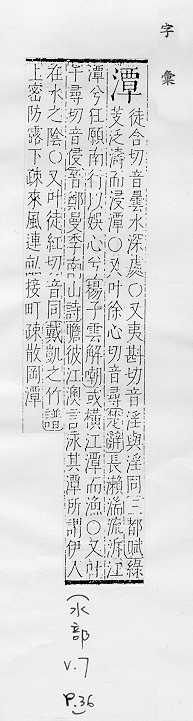 字彙
潭
徒合切音曇水深處○又夷斟切音淫與淫同三都賦綠
芰泛濤而浸潭○又叶徐心切音尋楚辭長瀨湍流泝江
潭兮狂顧南行以娛心兮揚子雲解嘲或橫江潭而漁○又叶
千尋切音侵晉鄭曼季南山詩瞻彼江澳言詠其潭所謂伊人
在水之陰○又叶徒紅切音同戴凱之竹譜
上密防露下疎來風連畝接町疎散岡潭
(水部 v.7 P.36